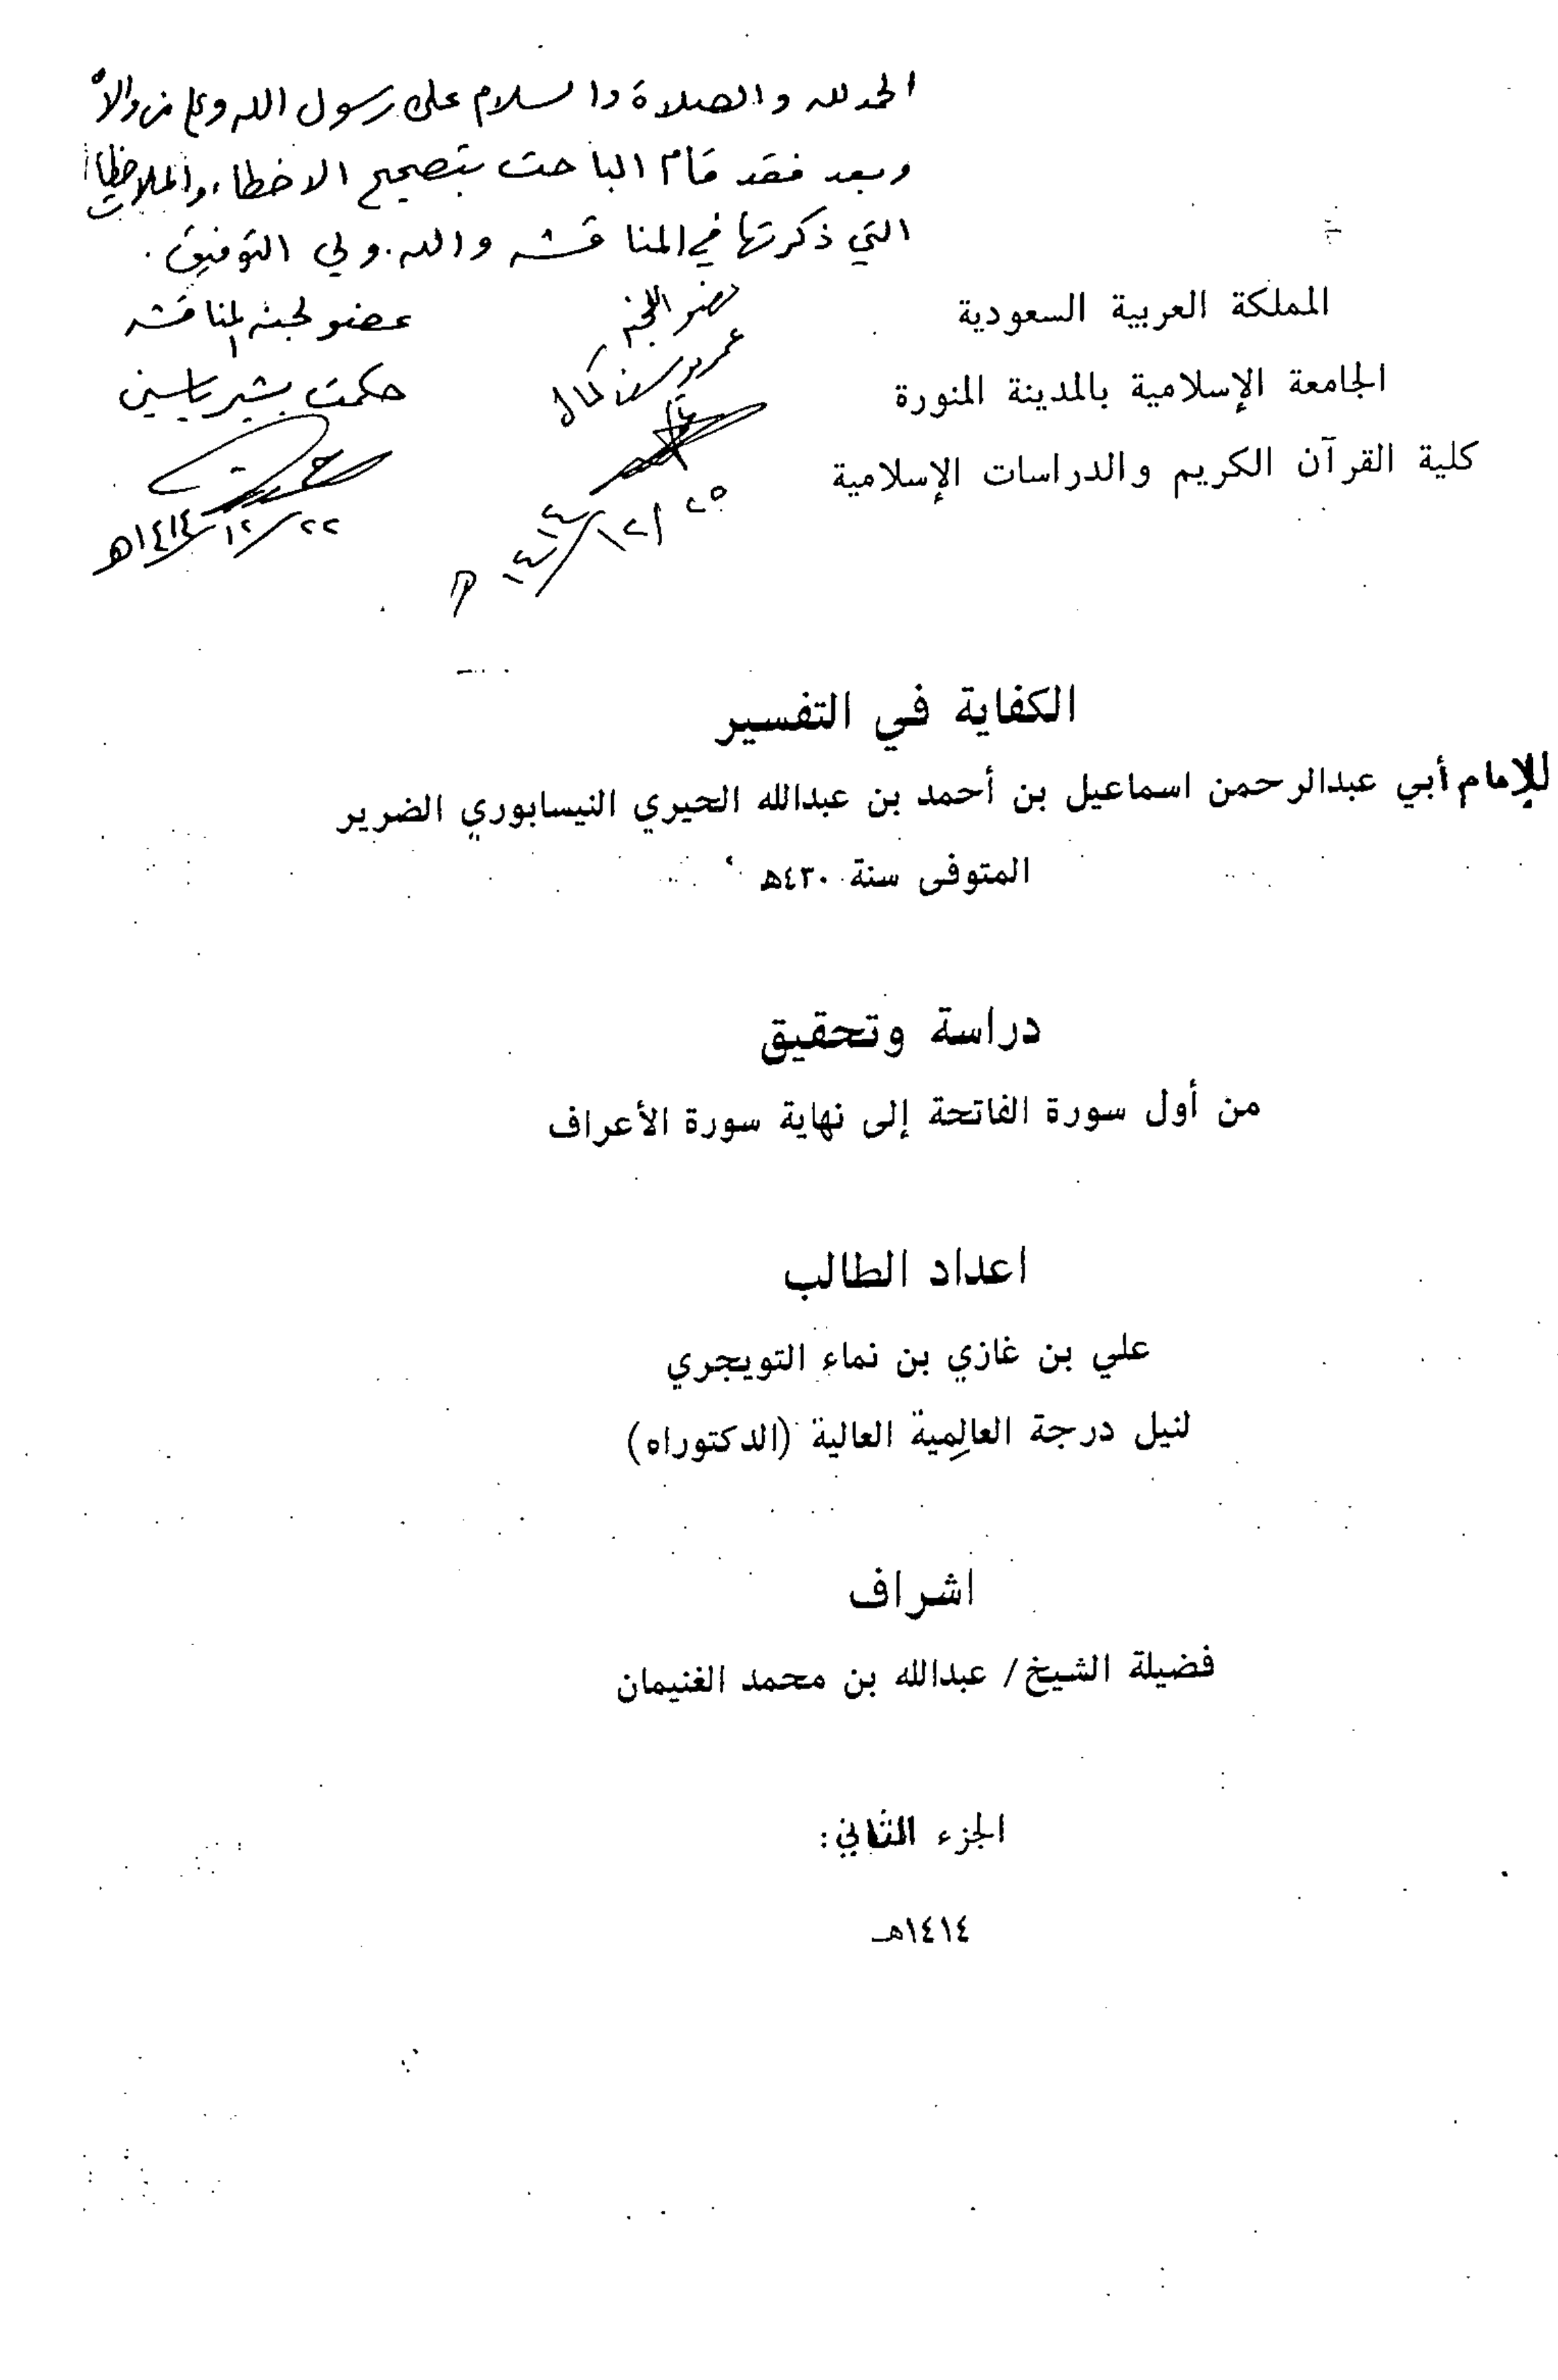 الحمد لله والصلاة والسلام على رسول الله وعلى من والاه
وبعد فقد قام الباحث بتصحيح الاخطاء والملاحظات
التي ذكرتها في المناقشه والله ولي التوفيق .
عضو اللجنة
عمر يوسف كمال
٢٥/١٢/١٤١٤ هـ
عضو لجنة المناقشه
حكمت بشير ياسين
٢٢/١٢/١٤١٤هـ
المملكة العربية السعودية
الجامعة الإسلامية بالمدينة المنورة
كلية القرآن الكريم والدراسات الإسلامية
الكفاية في التفسير
للإمام أبي عبدالرحمن اسماعيل بن أحمد بن عبدالله الحيري النيسابوري الضرير
المتوفى سنة ٤٣٠هـ
دراسة وتحقيق
من أول سورة الفاتحة إلى نهاية سورة الأعراف
اعداد الطالب
علي بن غازي بن نماء التويجري
لنيل درجة العالِمية العالية (الدكتوراه)
اشراف
فضيلة الشيخ/ عبدالله بن محمد الغنيمان
الجزء الثاني:
١٤١٤هـ